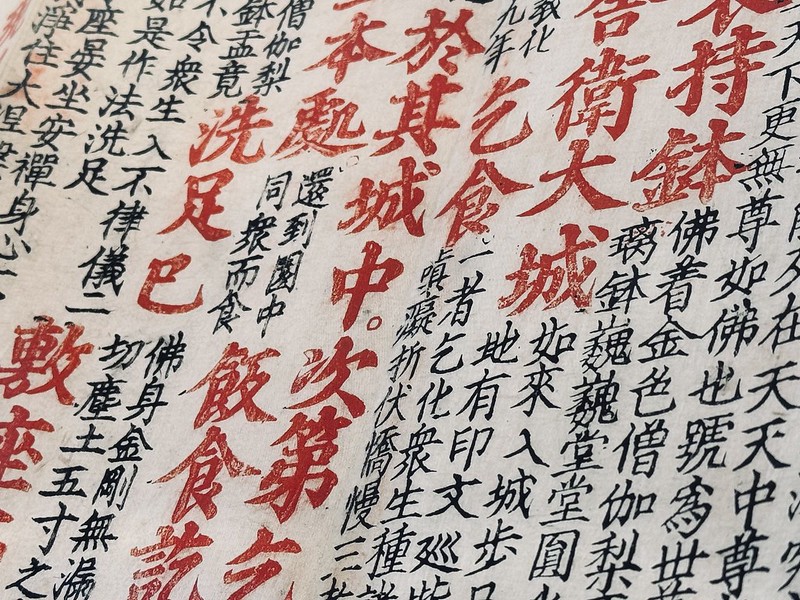 列在天天中尊
天下更無尊如佛也號為世
衣持鉢
佛着金色僧伽梨
璃鉢巍巍堂堂圓
舍衛大城
如來入城步
地有印文巡
義化
九年
乞食
一者乞化眾生種
嗔瀛折伏憍慢三
於其城中。次第乞
本處
還到園中
同眾而食
飯食訖
僧伽梨
鉢盂竟
洗足已
佛身金剛無漏
切塵土五寸之
不令眾生入不律儀二
如是作法洗足
敷座
座晏坐安禪身心
淨住大涅槃